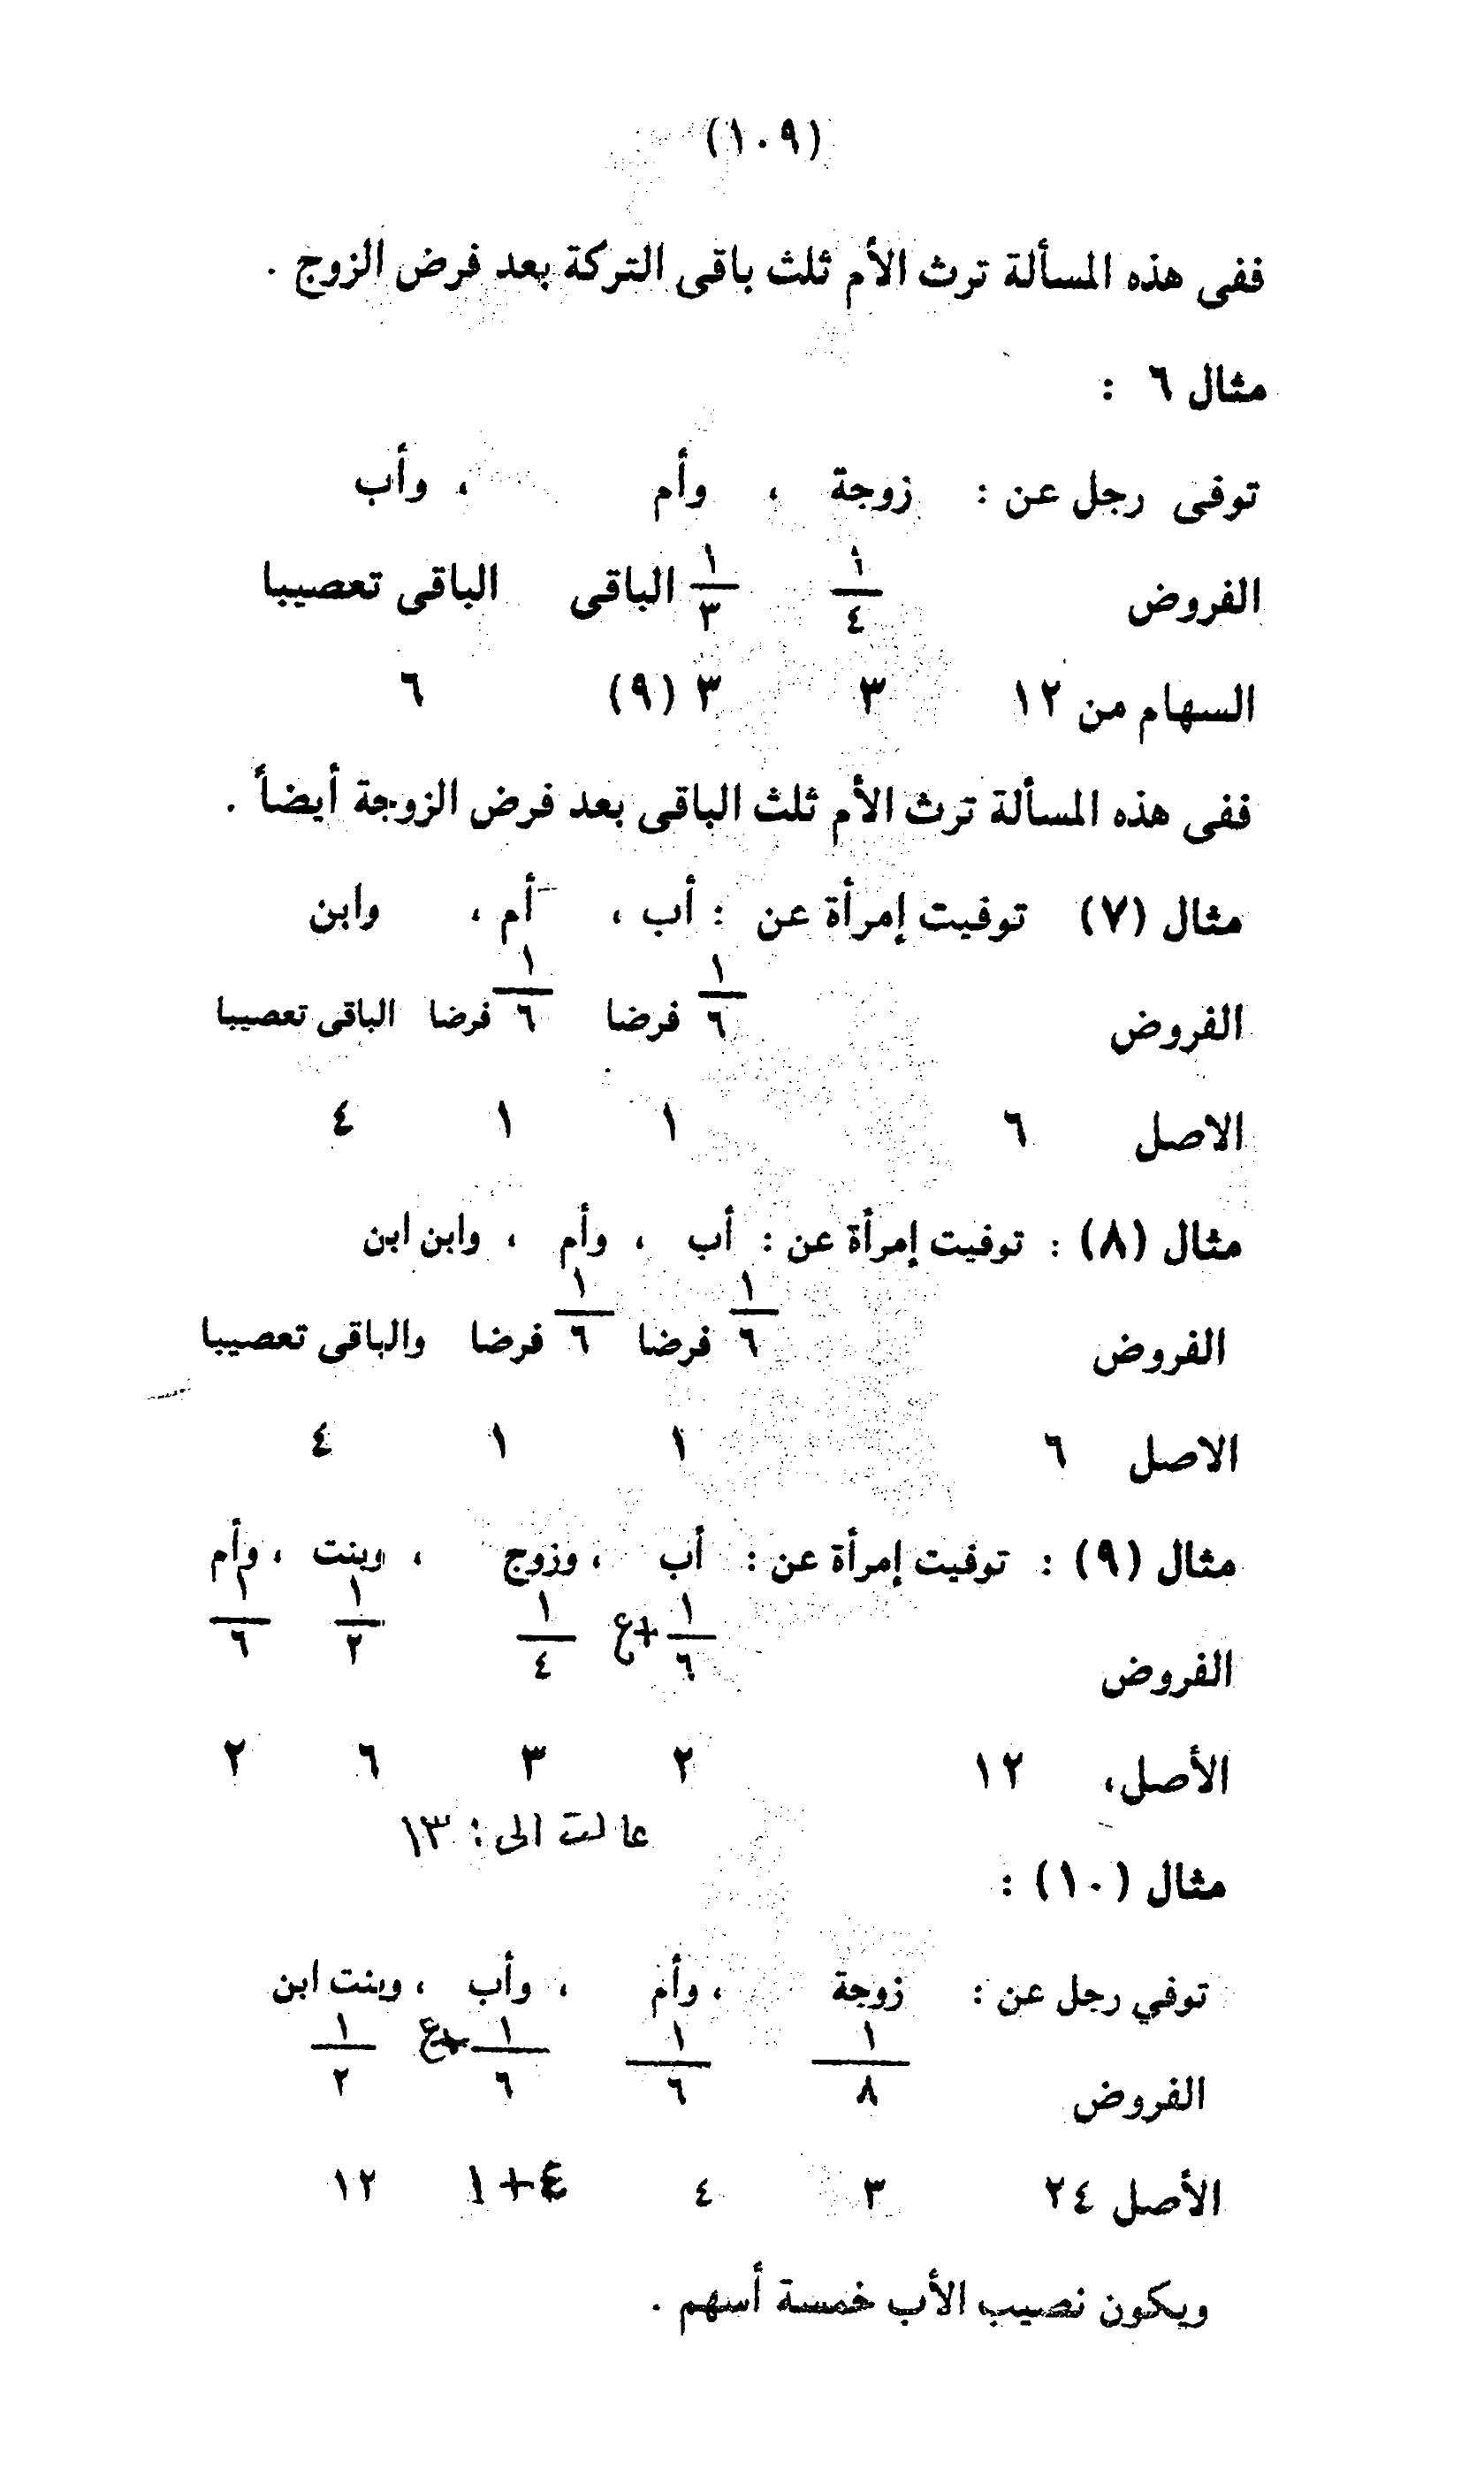 (١٠٩)
ففى هذه المسألة ترث الأم ثلث باقى التركة بعد فرض الزوج .
مثال ٦ :
توفى رجل عن : زوجة ، وأم ، وأب
الفروض ١/٤ ١/٣ الباقى الباقى تعصيبا
السهام من ١٢ ٣ ٣ (٩) ٦
ففى هذه المسألة ترث الأم ثلث الباقى بعد فرض الزوجة أيضاً .
مثال (٧) توفيت إمرأة عن : أب ، أم ، وابن
الفروض ١/٦ فرضا ١/٦ فرضا الباقى تعصيبا
الاصل ٦ ١ ١ ٤
مثال (٨) : توفيت إمرأة عن : أب ، وأم ، وابن ابن
الفروض ١/٦ فرضا ١/٦ فرضا والباقى تعصيبا
الاصل ٦ ١ ١ ٤
مثال (٩) : توفيت إمرأة عن : أب ، وزوج ، وبنت ، وأم
الفروض ١/٦ +ع ١/٤ ١/٢ ١/٦
الأصل، ١٢ ٢ ٣ ٦ ٢
عالت الى : ١٣
مثال (١٠) :
توفي رجل عن : زوجة ، وأم ، وأب ، وبنت ابن
الفروض ١/٨ ١/٦ ١/٦ +ع ١/٢
الأصل ٢٤ ٣ ٤ ٤+١ ١٢
ويكون نصيب الأب خمسة أسهم .